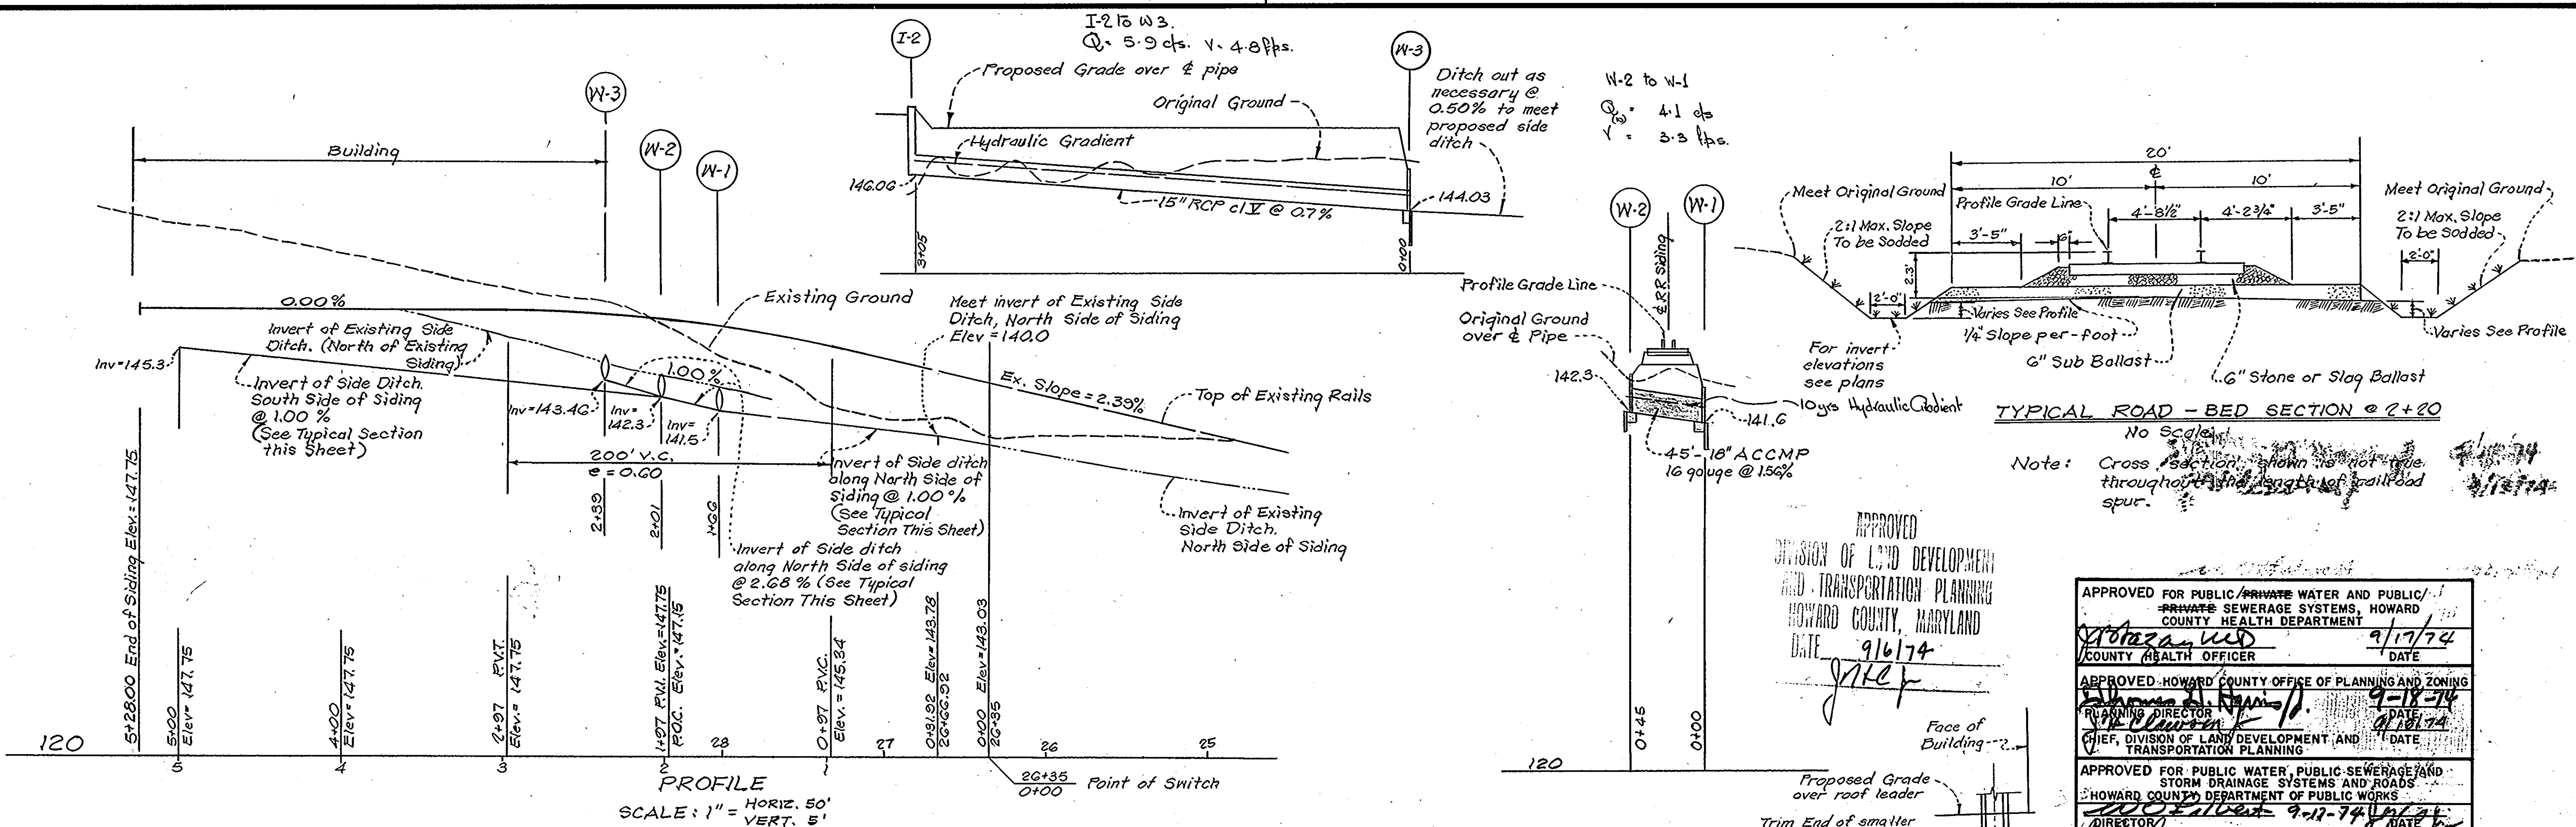 I-2 to W3.
Q= 5.9 cfs. V= 4.8 fps.
I-2
W-3
Proposed Grade over ℄ pipe
Original Ground
Hydraulic Gradient
146.06
15" RCP cl V @ 0.7%
144.03
Ditch out as
necessary @
0.50% to meet
proposed side
ditch
3+05
0+00
W-2 to W-1
4.1 cfs
V = 3.3 fps.
W-3
W-2
W-1
Building
0.00%
Existing Ground
Invert of Existing Side
Ditch. (North of Existing
Siding)
Inv=145.3
Invert of Side Ditch.
South Side of Siding
@ 1.00 %
(See Typical Section
this Sheet)
Inv=143.46
Inv=
142.3
Inv=
141.5
1.00%
200' V.C.
e = 0.60
2+39
2+01
1+66
Meet invert of Existing Side
Ditch, North Side of Siding
Elev = 140.0
Ex. Slope = 2.39%
Top of Existing Rails
Invert of Side ditch
along North Side of
Siding @ 1.00 %
(See Typical
Section This Sheet)
Invert of Side ditch
along North Side of siding
@ 2.68 % (See Typical
Section This Sheet)
Invert of Existing
Side Ditch.
North Side of Siding
5+28.00 End of Siding Elev.=147.75
5+00
Elev= 147.75
4+00
Elev= 147.75
2+97 P.V.T.
Elev.= 147.75
1+97 P.V.I. Elev.=147.75
P.O.C. Elev.=147.15
0+97 P.V.C.
Elev. = 145.34
0+31.92 Elev=143.78
26+66.92
0+00 Elev=143.03
26+35
120
5
4
3
2
28
1
27
26
25
26+35
0+00
Point of Switch
PROFILE
SCALE: 1" = HORIZ. 50'
VERT. 5'
W-2
W-1
℄ RR Siding
Profile Grade Line
Original Ground
over ℄ Pipe
142.3
141.6
10 yrs Hydraulic Gradient
45'- 18" ACCMP
16 gauge @ 1.56%
0+45
0+00
120
20'
℄
10'
10'
Meet Original Ground
Profile Grade Line
4'-8½"
4'-2¾"
3'-5"
Meet Original Ground
2:1 Max. Slope
To be Sodded
3'-5"
6"
2:1 Max. Slope
To be Sodded
2.3'
2'-0"
2'-0"
Varies See Profile
Varies See Profile
1/4" Slope per-foot
6" Sub Ballast
6" Stone or Slag Ballast
For invert
elevations
see plans
TYPICAL ROAD - BED SECTION @ 2+20
No Scale
Note: Cross section shown is not true
throughout the length of railroad
spur.
APPROVED
DIVISION OF LAND DEVELOPMENT
AND TRANSPORTATION PLANNING
HOWARD COUNTY, MARYLAND
DATE 9/6/74
Face of
Building
Proposed Grade
over roof leader
Trim End of smaller
APPROVED FOR PUBLIC/PRIVATE WATER AND PUBLIC/
PRIVATE SEWERAGE SYSTEMS, HOWARD
COUNTY HEALTH DEPARTMENT
9/17/74
COUNTY HEALTH OFFICER DATE
APPROVED HOWARD COUNTY OFFICE OF PLANNING AND ZONING
9-18-74
PLANNING DIRECTOR DATE
CHIEF, DIVISION OF LAND DEVELOPMENT AND DATE
TRANSPORTATION PLANNING
APPROVED FOR PUBLIC WATER, PUBLIC SEWERAGE AND
STORM DRAINAGE SYSTEMS AND ROADS
HOWARD COUNTY DEPARTMENT OF PUBLIC WORKS
9-17-74
DIRECTOR DATE